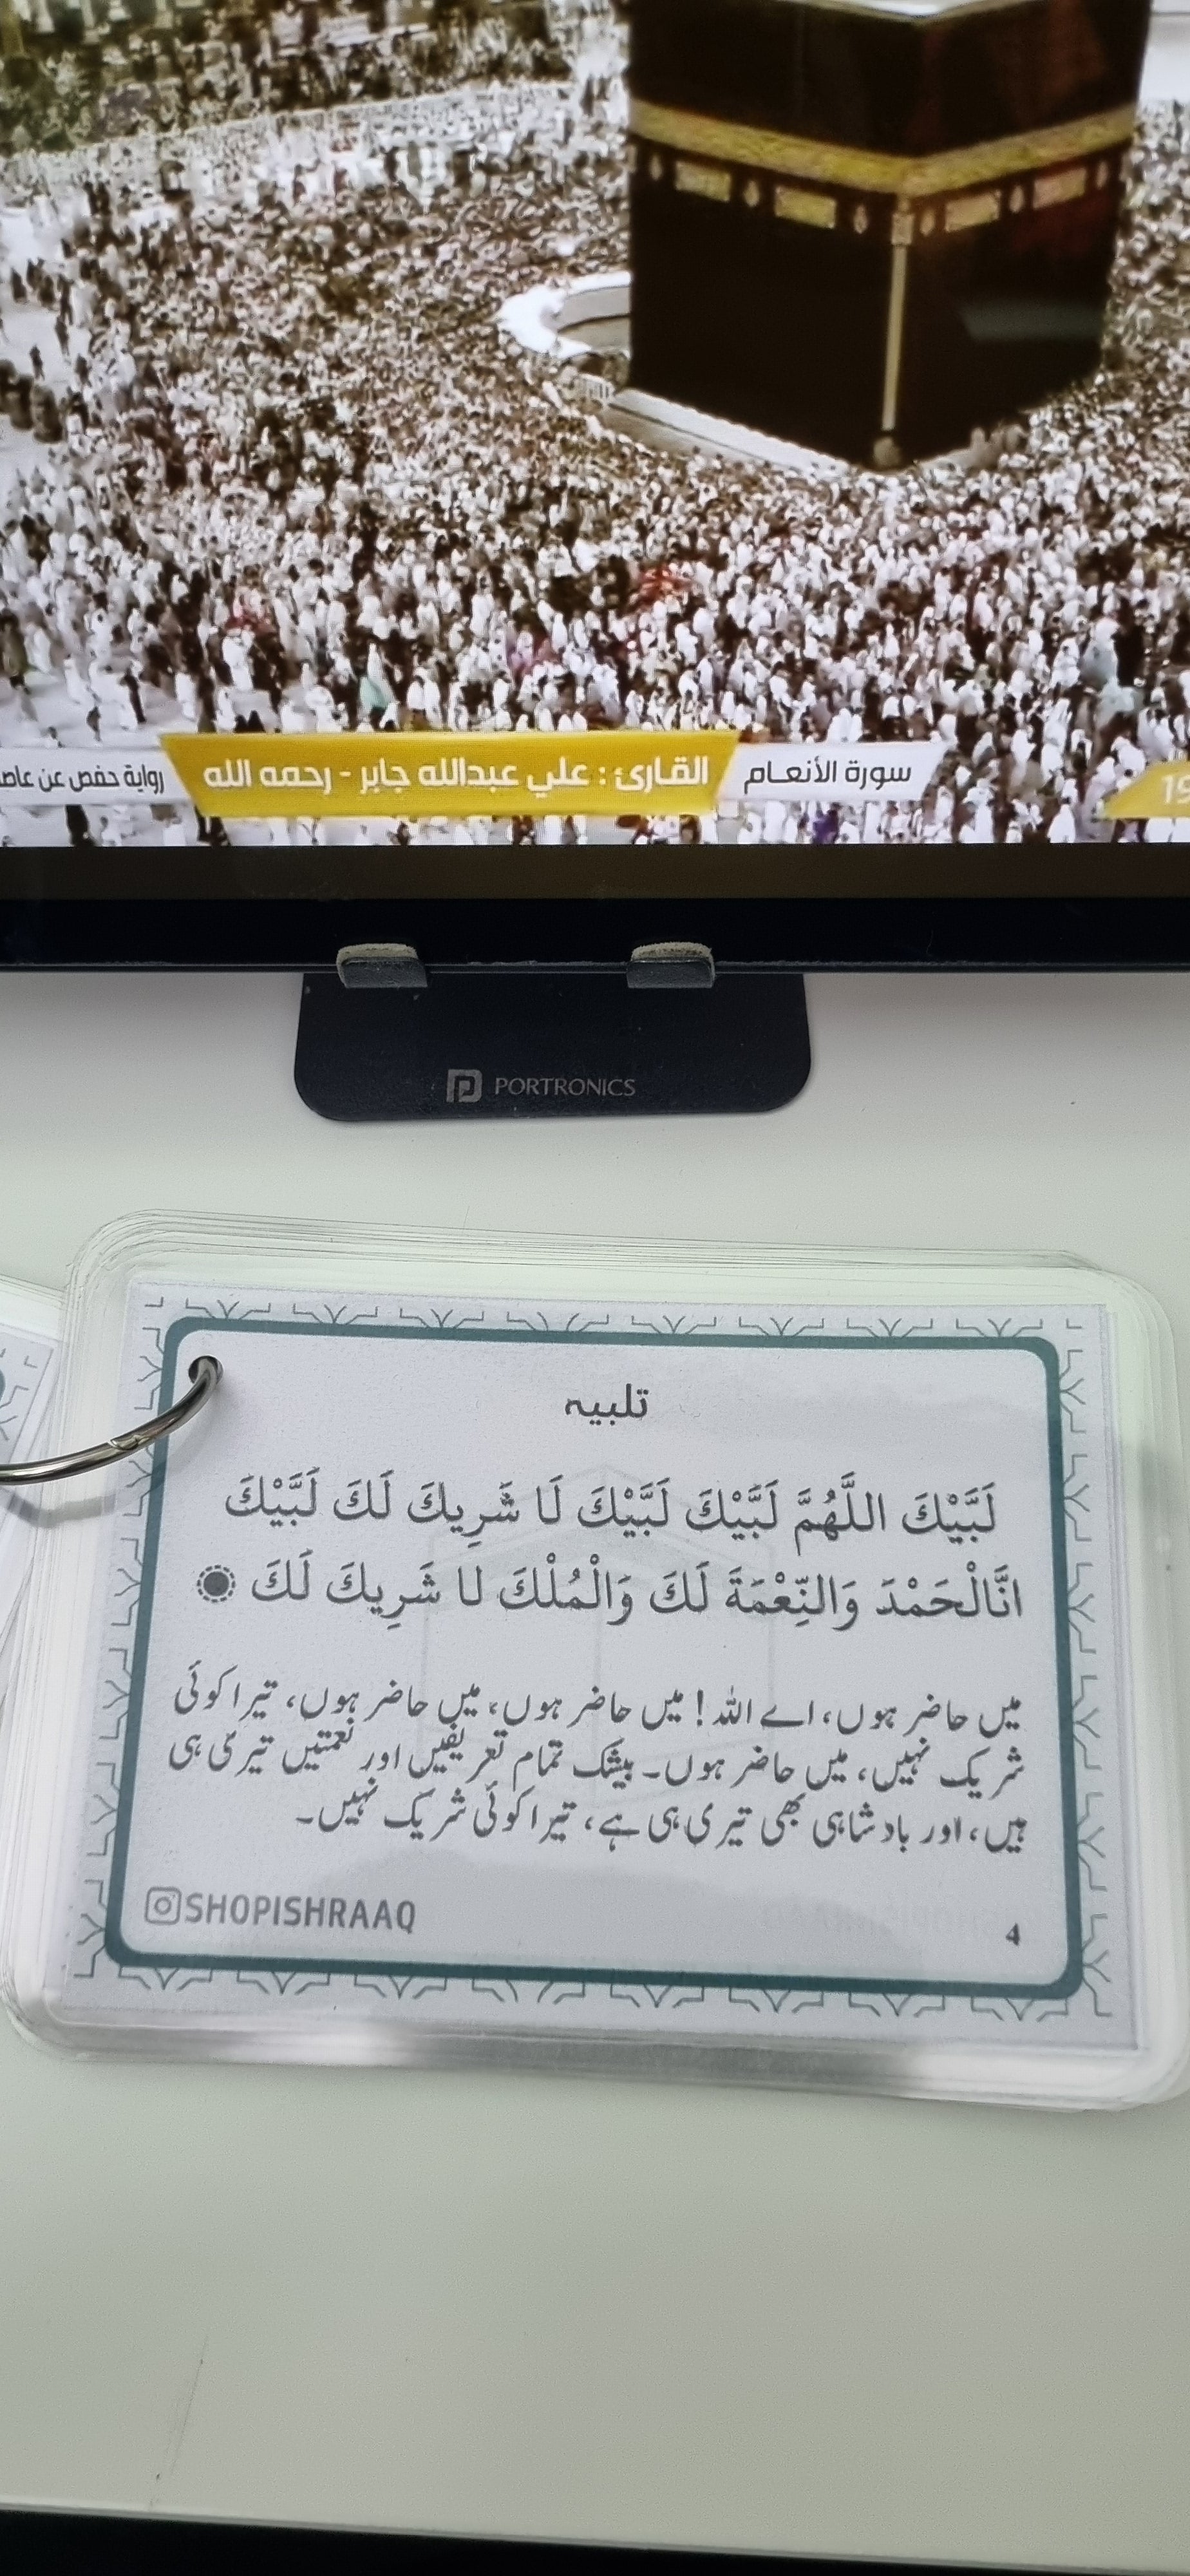 سورة الأنعام
القارئ : علي عبدالله جابر - رحمه الله
رواية حفص عن
19
PORTRONICS
تلبیہ
لَبَّيْكَ اللَّهُمَّ لَبَّيْكَ لَبَّيْكَ لَا شَرِيكَ لَكَ لَبَّيْكَ
انَّالْحَمْدَ وَالنِّعْمَةَ لَكَ وَالْمُلْكَ لا شَرِيكَ لَكَ
میں حاضر ہوں، اے اللہ! میں حاضر ہوں، میں حاضر ہوں، تیرا کوئی
شریک نہیں، میں حاضر ہوں۔ بیشک تمام تعریفیں اور نعمتیں تیری ہی
ہیں، اور بادشاہی بھی تیری ہی ہے، تیرا کوئی شریک نہیں۔
SHOPISHRAAQ
4